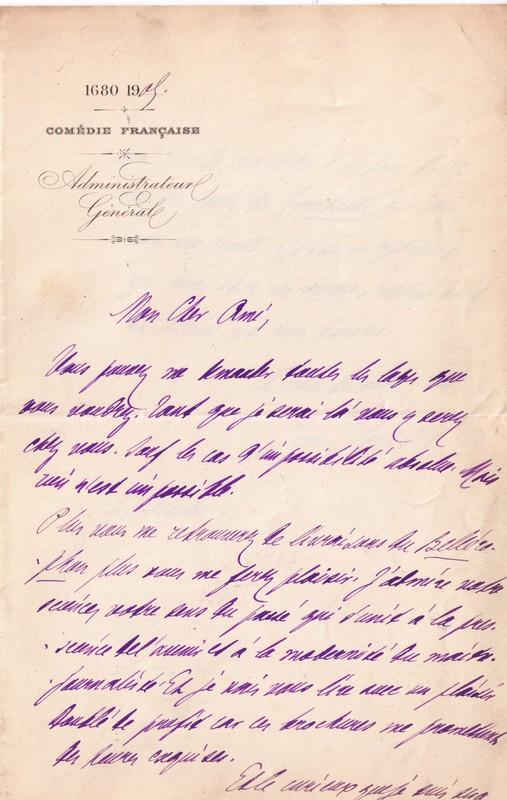 1680 1905.
COMÉDIE FRANÇAISE
Administrateur
Général
Mon Cher Ami,
Vous pouvez me demander toutes les loges que
vous voudrez. Tant que je serai là vous y serez
chez vous. Sauf les cas d'impossibilité absolue. Mais
rien n'est impossible.
Plus vous me retrouverez de livraisons du Bellero-
-phon plus vous me ferez plaisir. J'admire votre
science, votre sens du passé qui s'unit à la pres-
-cience de l'avenir et à la modernité du maitre
journaliste. Et je vais vous lire avec un plaisir
doublé de profit car ces brochures me promettent
des heures exquises.
Et le curieux que je suis